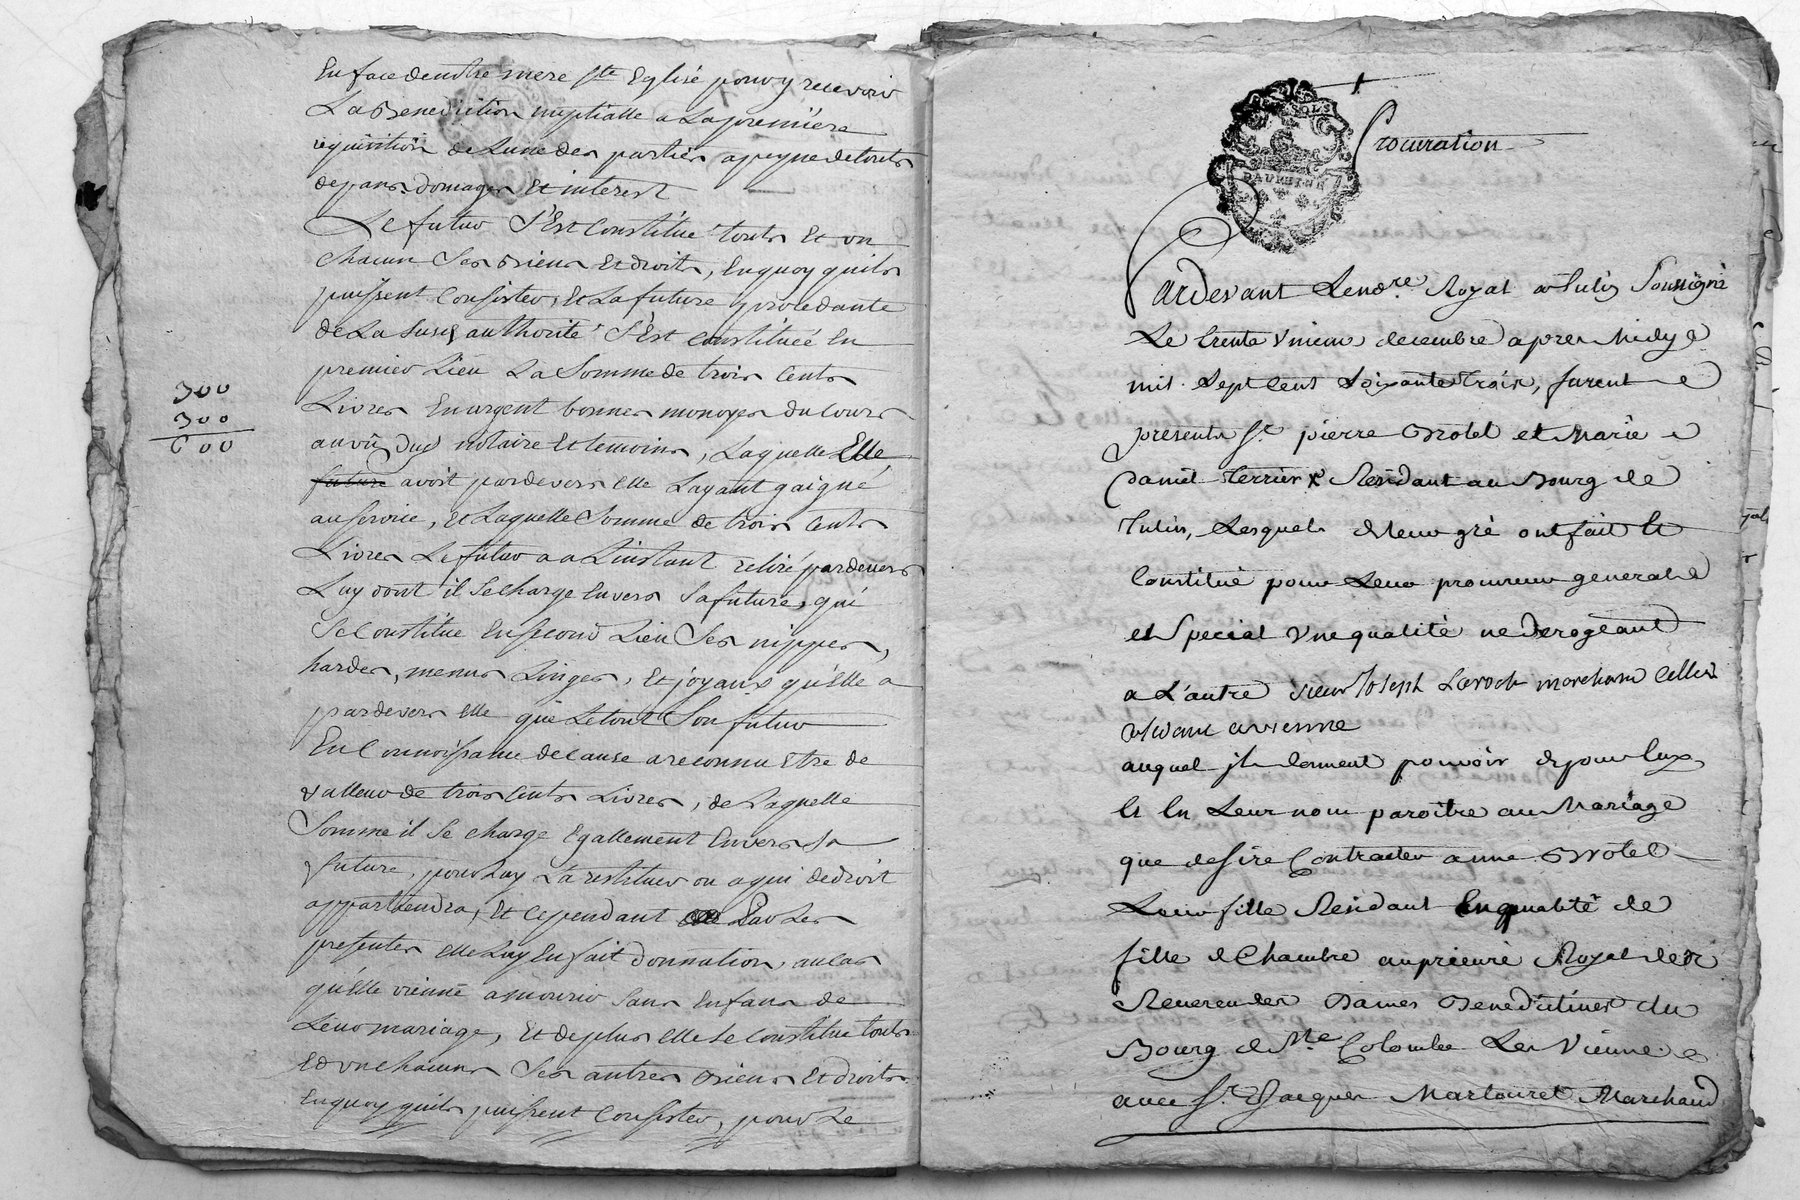 En face de notre mere ste Eglise pour y recevoir
La Benediction nuptialle a La premiere
requisition de Lune des parties a peyne de touts
depans domages et interest
Le futur s'Est Constitué touts et un
chacun Ses Biens et droits, En quoy quils
puissent Consister, et La future procedante
de La susd authorité s'Est constituée En
premier Lieu La Somme de trois Cents
300
Livres En argent bonnes monoyes du Cours
300
au vû dud notaire et temoins, Laquelle Elle
600
future avoit pardevers elle Layant gaigné
au service, et Laquelle Somme de trois Cents
Livres Le futur a a L'instant retiré pardevers
Luy dont il se charge Envers Sa future, qui
se Constitue En second Lieu Ses nippes,
hardes, menus Linges, et joyaux qu'Elle a
pardevers elle que Le tout Son futur
En Connoissance de Cause a reconnu Etre de
valleur de trois Cents Livres, de Laquelle
Somme il se charge Egallement Envers Sa
future, pour Luy La restituer ou a qui de droit
appartiendra, et cependant Par Les
presentes elle Luy En fait donnation, au cas
qu'Elle vienne a mourir sans Enfans de
Leur mariage, et de plus elle se constitue touts
et un chacuns Ses autres Biens et droits
En quoy quils puissent Consister, pour Le
DAUPHINE
Procuration
Pardevant Le no.re Royal a Tulin Soussigné
Le trente vnieme decembre apres Midy
mil Sept Cent Soixante trois, furent
presents Sr pierre Brotel et Marie
Daniel Terrier Residant au Bourg de
Tulin, Lesquels de leur gré ont fait et
Constitué pour Leur procureur general
et Special vne qualité ne derogeant
a L'autre sieur Joseph Laroch marchand Cellier
auquel ils donnent pouvoir de pour Eux
et En Leur nom paroitre au Mariage
que desire Contracter anne Brotel
Leur fille Residant En qualité de
fille de Chambre au prieuré Royal des
Reverendes Dames Benedictines du
Bourg de Ste Colombe Les Vienne
avec Sr Jacques Martouret Marchand